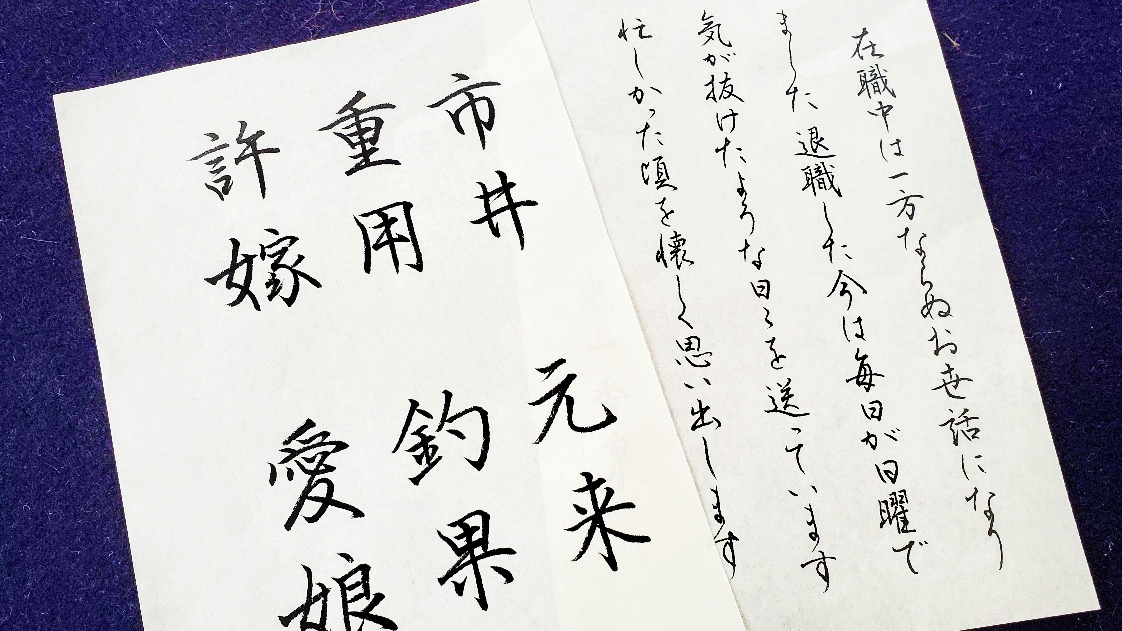 在職中は一方ならぬお世話になり
ました退職した今は毎日が日曜で
気が抜けたような日々を送っています
忙しかった頃を懐しく思い出します
市井 元来
重用 釣果
許嫁 愛娘